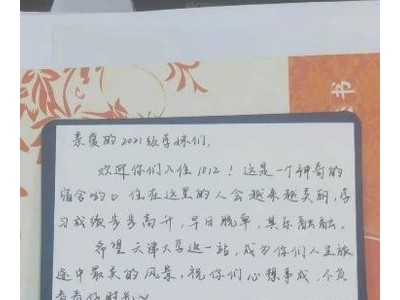 书
亲爱的2021级学妹们,
欢迎你们入住1012！这是一个神奇的
宿舍哟。住在这里的人会越来越美丽,学
习成绩步步高升,早日脱单,其乐融融。
希望天津大学这一站,成为你们人生旅
途中最美的风景,祝你们心想事成,不负
青春好时光~